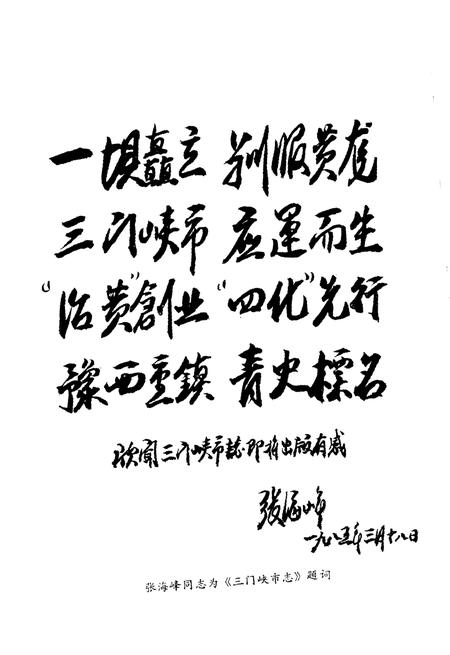 一坝矗立 驯服黄龙
三门峡市 应運而生
“治黄”創业 “四化”先行
豫西重鎮 青史標名
欣聞三门峡市誌即将出版有感
张海峰
一九八五年三月十八日
张海峰同志为《三门峡市志》题词